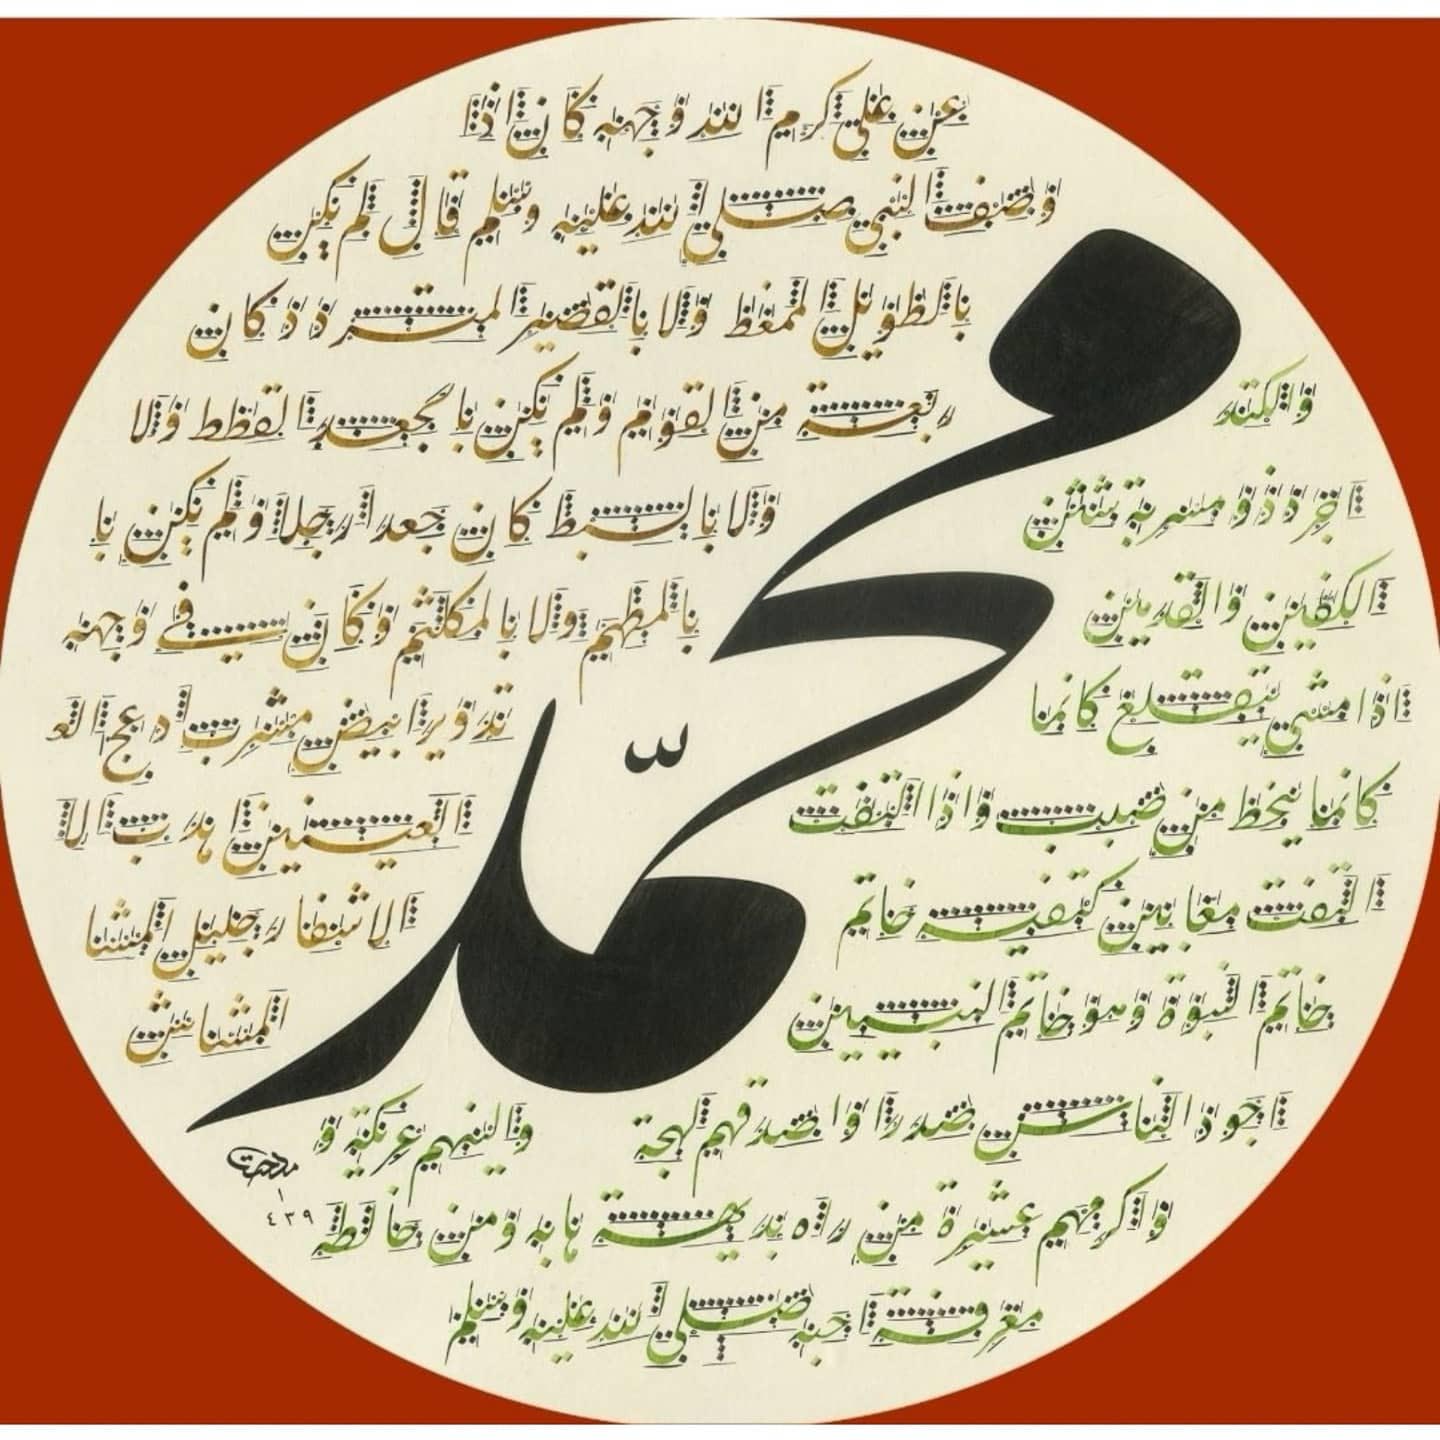 عن علي كرم الله وجهه كان اذا
وصف النبي صلى الله عليه وسلم قال لم يكن
بالطويل الممغط ولا بالقصير المتردد كان
ربعة من القوم ولم يكن بالجعد القطط ولا
ولا بالسبط كان جعدا رجلا ولم يكن با
بالمطهم ولا بالمكلثم وكان في وجهه
تدوير ابيض مشرب ادعج الع
العينين اهدب الا
الاشفار جليل المشا
المشاش
محمد
والكتد
اجرد ذو مسربة شثن
الكفين والقدمين
اذا مشى تقلع كانما
كانما ينحط من صبب واذا التفت
التفت معا بين كتفيه خاتم
خاتم النبوة وهو خاتم النبيين
اجود الناس صدرا واصدقهم لهجة
والينهم عريكة و
واكرمهم عشيرة من راه بديهة هابه ومن خالطه
معرفة احبه صلى الله عليه وسلم
مدحت
١٤٣٩